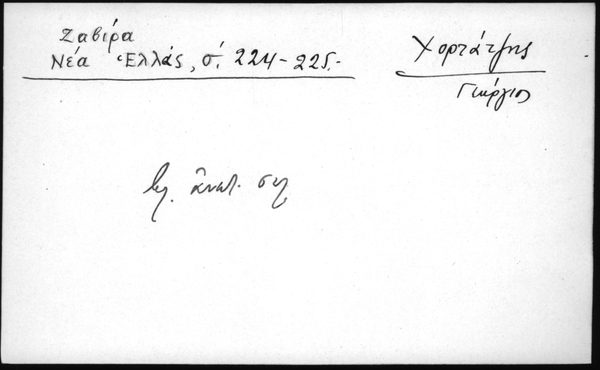 Ζαβίρα
Νέα Ἑλλάς, σ. 224-225.-
Χορτάτζης
Γεώργιος